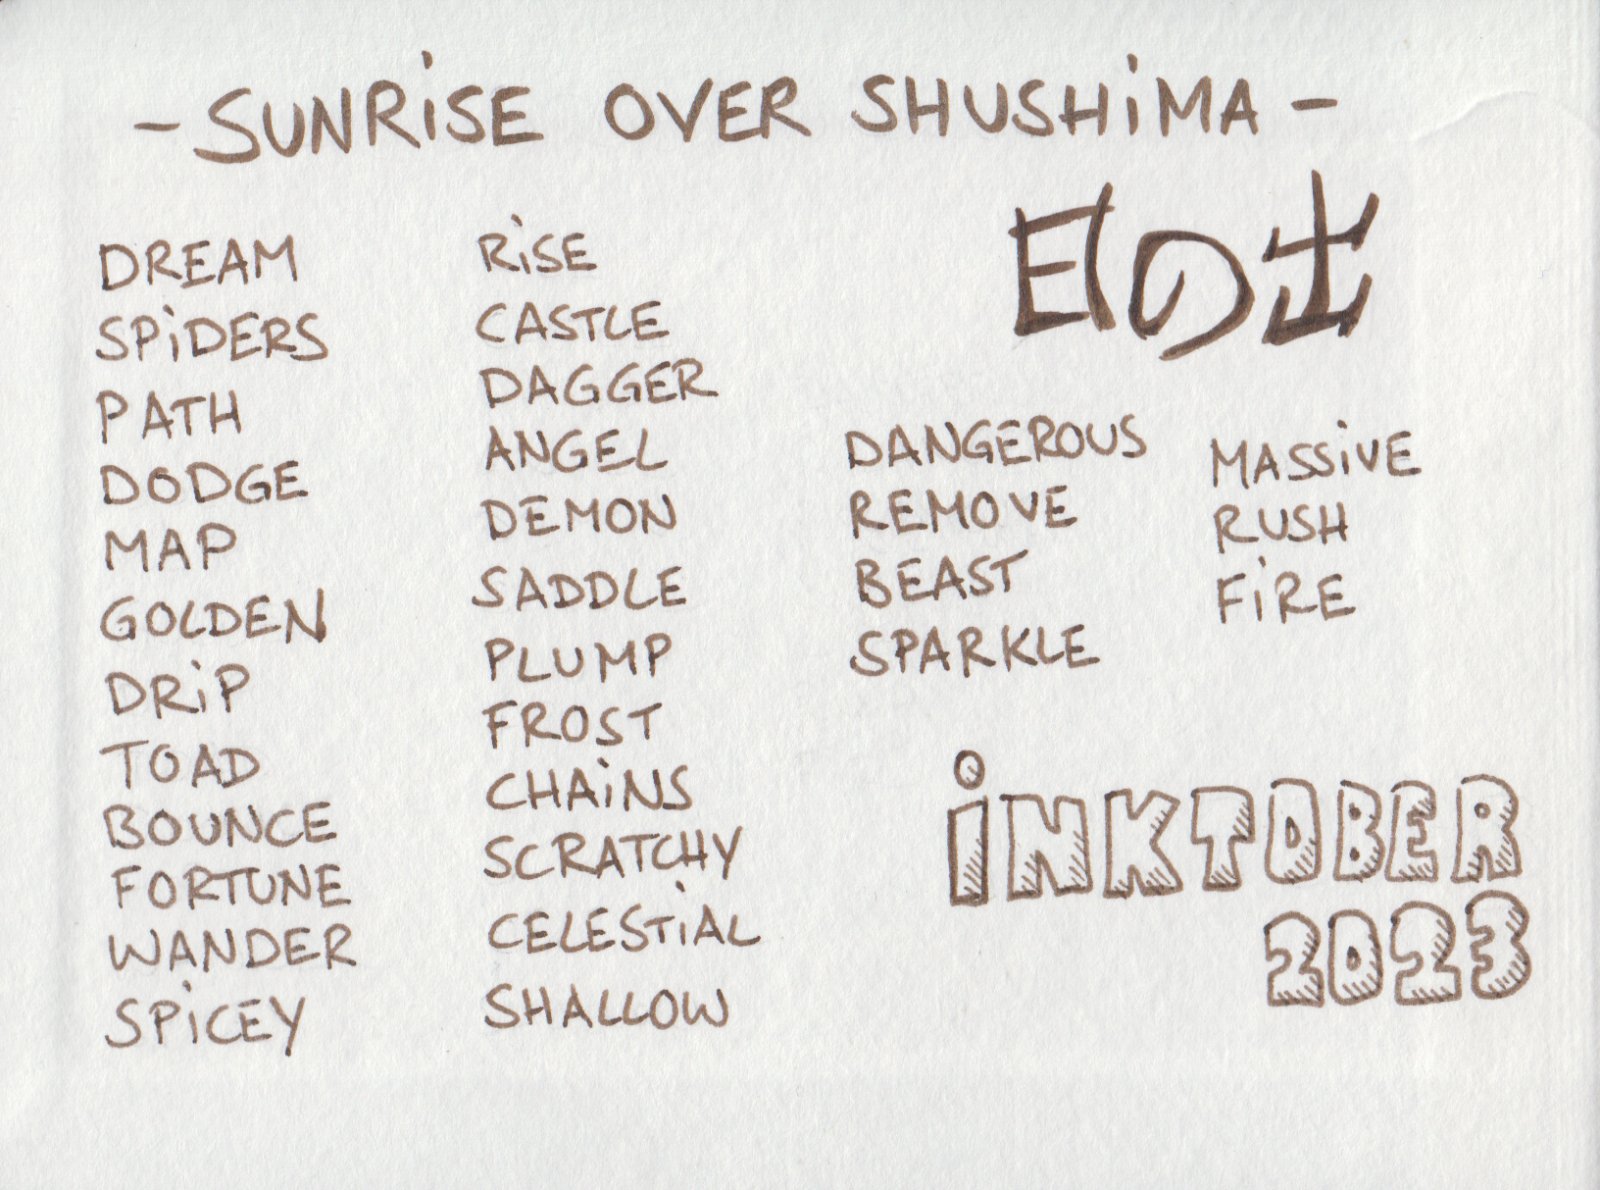 - SUNRiSE OVER SHUSHiMA -
日の出
DREAM
SPiDERS
PATH
DODGE
MAP
GOLDEN
DRiP
TOAD
BOUNCE
FORTUNE
WANDER
SPiCEY
RiSE
CASTLE
DAGGER
ANGEL
DEMON
SADDLE
PLUMP
FROST
CHAiNS
SCRATCHY
CELESTiAL
SHALLOW
DANGEROUS
REMOVE
BEAST
SPARKLE
MASSiVE
RUSH
FiRE
iNKTOBER
2023